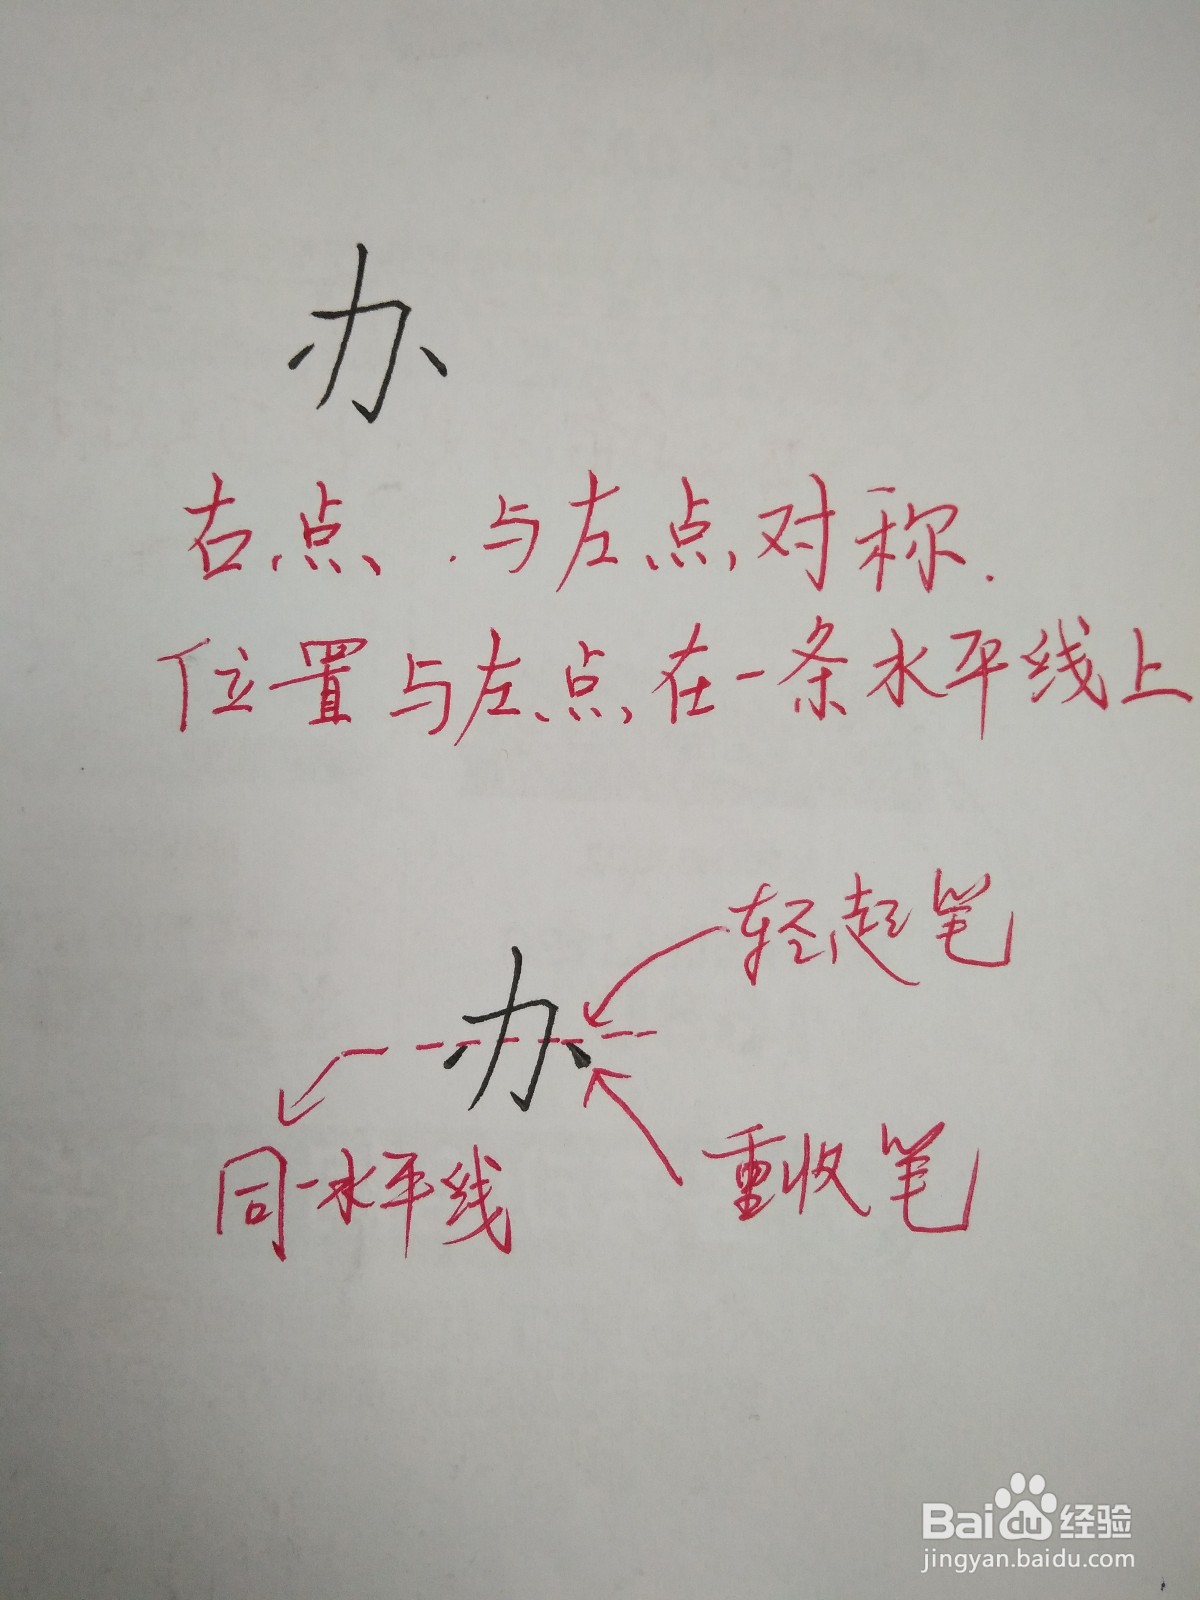 办
右点、.与左点对称.
位置与左点在一条水平线上
轻起笔
办
同一水平线
重收笔
Baidu经验
jingyan.baidu.com